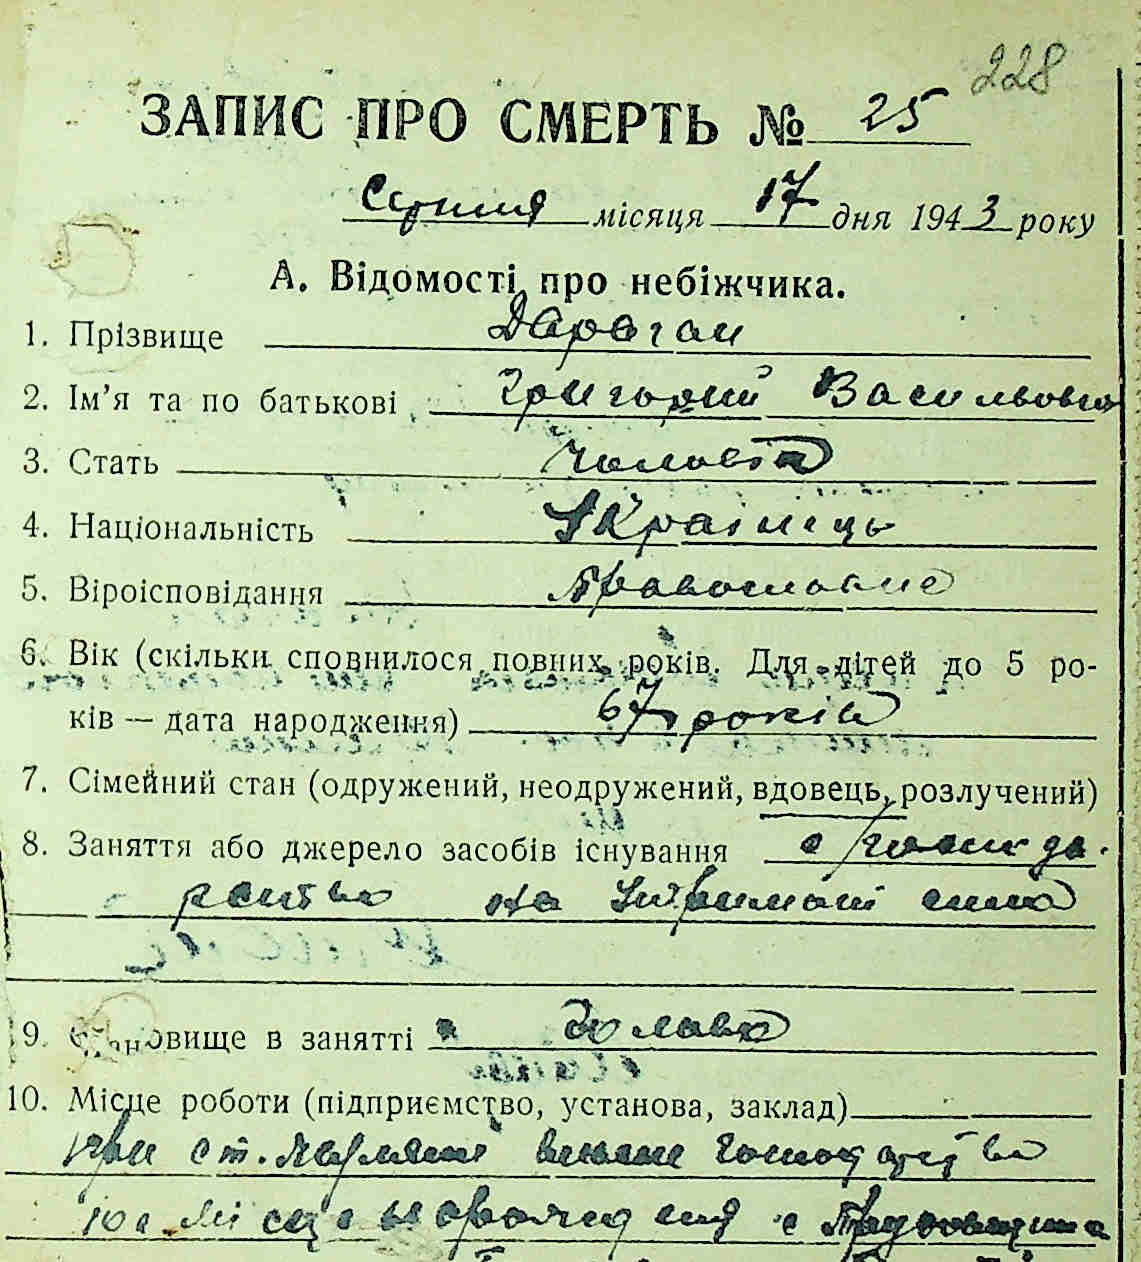 228
ЗАПИС ПРО СМЕРТЬ № 25
Серпня місяця 17 дня 1943 року
А. Відомості про небіжчика.
1. Прізвище Дараган
2. Ім'я та по батькові Григорий Васильович
3. Стать Чоловіча
4. Національність Українець
5. Віроісповідання Православне
6. Вік (скільки сповнилося повних років. Для дітей до 5 ро-
ків — дата народження) 67 років
7. Сімейний стан (одружений, неодружений, вдовець, розлучений)
8. Заняття або джерело засобів існування с/господа-
рство на утриманні сина
9. Становище в занятті Голова
10. Місце роботи (підприємство, установа, заклад)
при ст. власне господарство
10а місце народження с